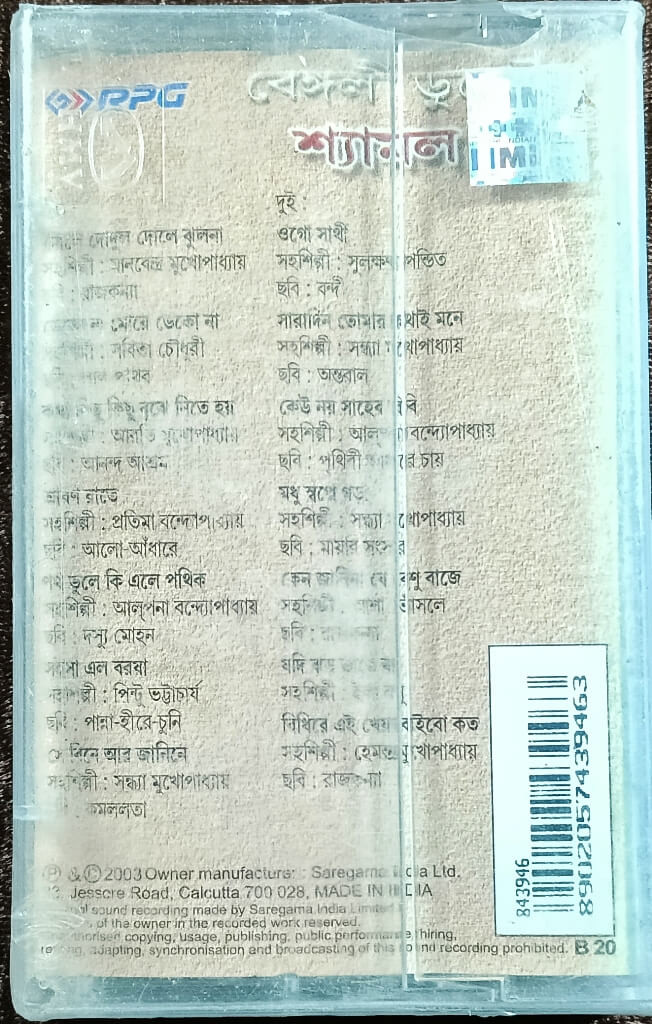 RPG
বেঙ্গলী
শ্যামল
INDIAN
দোদুল দোলে ঝুলনা
সহশিল্পী : মানবেন্দ্র মুখোপাধ্যায়
: রাজকন্যা
মোরে ডেকো না
: সবিতা চৌধুরী
কিছু কিছু বুঝে নিতে হয়
: আরতি মুখোপাধ্যায়
ছবি : আনন্দ আশ্রম
শ্রাবণ রাতে
সহশিল্পী : প্রতিমা বন্দ্যোপাধ্যায়
ছবি : আলো-আঁধারে
পথ ভুলে কি এলে পথিক
সহশিল্পী : আল্পনা বন্দ্যোপাধ্যায়
ছবি : দস্যু মোহন
এল বরষা
সহশিল্পী : পিন্টু ভট্টাচার্য
ছবি : পান্না-হীরে-চুনি
বিনে আর জানিনে
সহশিল্পী : সন্ধ্যা মুখোপাধ্যায়
: কমললতা
দুই :
ওগো সাথী
সহশিল্পী : সুলক্ষণা পণ্ডিত
ছবি : বন্দী
সারাদিন তোমার কথাই মনে
সহশিল্পী : সন্ধ্যা মুখোপাধ্যায়
ছবি : অন্তরাল
কেউ নয় সাহেব বিবি
সহশিল্পী : আল্পনা বন্দ্যোপাধ্যায়
ছবি : পৃথিবী আমারে চায়
মধু স্বপ্নে গড়া
সহশিল্পী : সন্ধ্যা মুখোপাধ্যায়
ছবি : মায়ার সংসার
কেন জানিনা যে বাজে
সহশিল্পী : আশা ভোঁসলে
ছবি : রাজকন্যা
যদি
সহশিল্পী :
এই খেয়া বাইবো কত
সহশিল্পী : হেমন্ত মুখোপাধ্যায়
ছবি : রাজকন্যা
Ⓟ & © 2003 Owner manufacture: : Saregama India Ltd.
Jessore Road, Calcutta 700 028, MADE IN INDIA
sound recording made by Saregama India Limited
of the owner in the recorded work reserved.
copying, usage, publishing, public performance, hiring,
adapting, synchronisation and broadcasting of this sound recording prohibited. B 20
843946
8902057439463